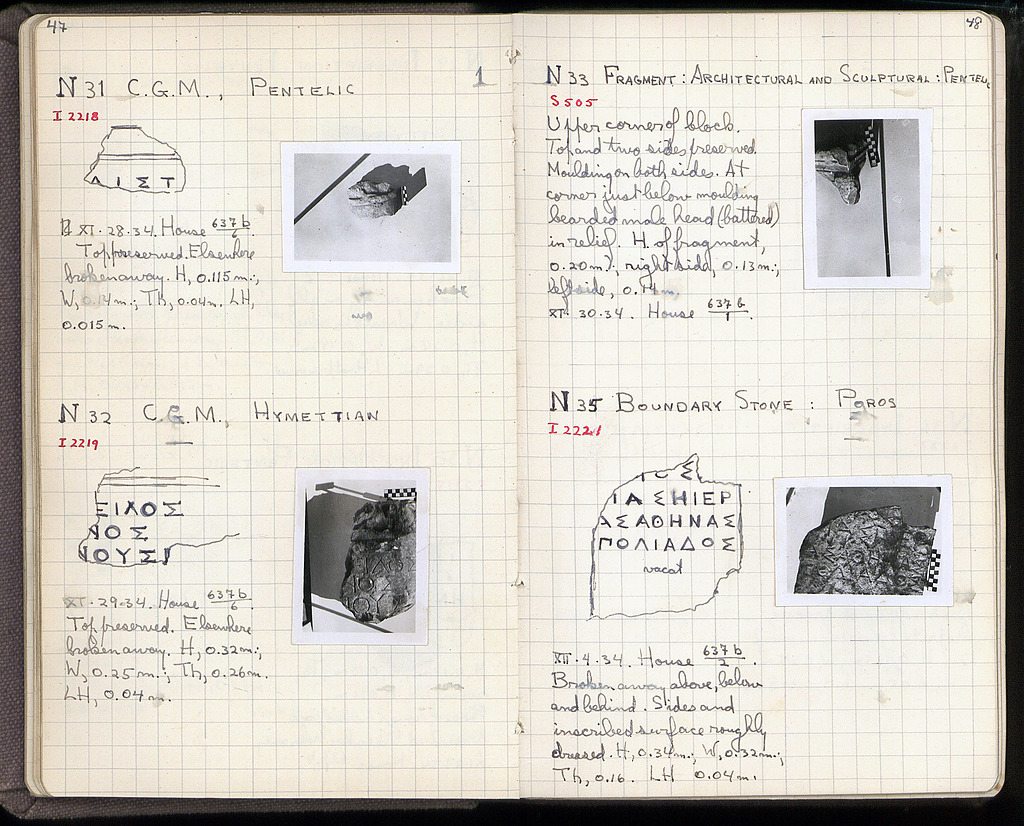 47
N 31 C.G.M., PENTELIC
1
I 2218
Λ Ι Σ Τ
XI·28·34. House 637 b/6.
Top preserved. Elsewhere
broken away. H, 0.115 m.;
W, 0.14 m.; Th, 0.04 m. LH,
0.015 m.
N 32 C.G.M., HYMETTIAN
I 2219
ΕΙΛΟΣ
ΛΟΣ
ΙΟΥΣΙ
XI·29·34. House 637 b/6.
Top preserved. Elsewhere
broken away. H, 0.32 m.;
W, 0.25 m.; Th, 0.26 m.
LH, 0.04 m.
48
N 33 FRAGMENT: ARCHITECTURAL AND SCULPTURAL: PENTEL
S 505
Upper corner of block.
Top and two sides preserved.
Moulding on both sides. At
corner just below moulding
bearded male head (battered)
in relief. H. of fragment,
0.20 m.; right side, 0.13 m.;
left side, 0.14 m.
XI·30·34. House 637 b/1.
N 35 BOUNDARY STONE: POROS
I 2221
ΙΟΣ
ΙΑΣΗΙΕΡ
ΑΣΑΘΗΝΑΣ
ΠΟΛΙΑΔΟΣ
vacat
XII·4·34. House 637 b/2.
Broken away above, below
and behind. Sides and
inscribed surface roughly
dressed. H, 0.34 m.; W, 0.32 m.;
Th, 0.16. LH 0.04 m.